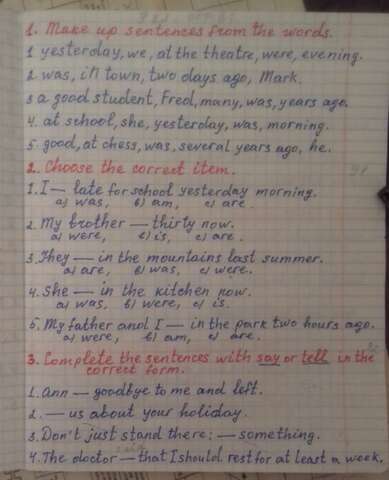 1. Make up sentences from the words.
1 yesterday, we, at the theatre, were, evening.
2 was, in town, two days ago, Mark.
3 a good student, Fred, many, was, years ago.
4. at school, she, yesterday, was, morning.
5. good, at chess, was, several years ago, he.
2. Choose the correct item.
1. I — late for school yesterday morning.
a) was, b) am, c) are.
2. My brother — thirty now.
a) were, b) is, c) are.
3. They — in the mountains last summer.
a) are, b) was, c) were.
4. She — in the kitchen now.
a) was, b) were, c) is.
5. My father and I — in the park two hours ago.
a) were, b) am, c) are.
3. Complete the sentences with say or tell in the
correct form.
1. Ann — goodbye to me and left.
2. — us about your holiday.
3. Don't just stand there: — something.
4. The doctor — that I should rest for at least a week.